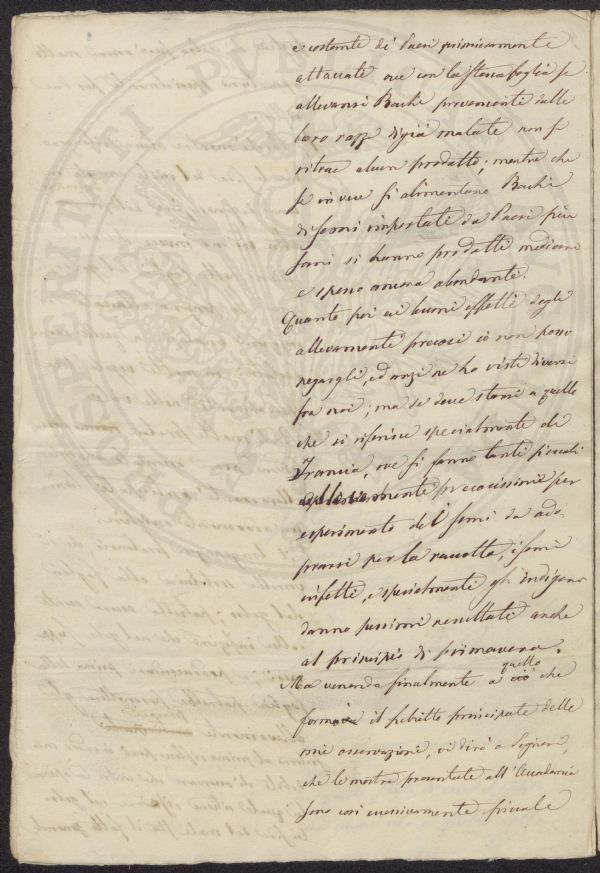 e costante di Paesi primieramente
attaccati ove con la stessa foglia se
allevansi Bachi provenienti dalle
loro razze di già malate non si
ritrae alcun prodotto; mentre che
se in vece si alimentano Bachi
di semi importati da Paesi più
sani si hanno prodotti mediocri
e spesso ancora abondanti.
Quanto poi ai buoni effetti degli
allevamenti precoci io non posso
negargli, ed anzi ne ho visti diversi
fra noi; ma se deve starsi a quello
che si riferisce specialmente di
Francia, ove si fanno tanti piccoli
allevamenti precocissimi per
esperimento dei semi da ado-
prarsi per la raccolta, i semi
infetti, e specialmente gli indigeni
danno pessimi resultati anche
al principio di primavera.
Ma venendo finalmente a quello che
forma il subietto principale delle
mie osservazioni, vi dirò o Signori,
che le mostre presentate all'Accademia
sono così eccessivamente piccole